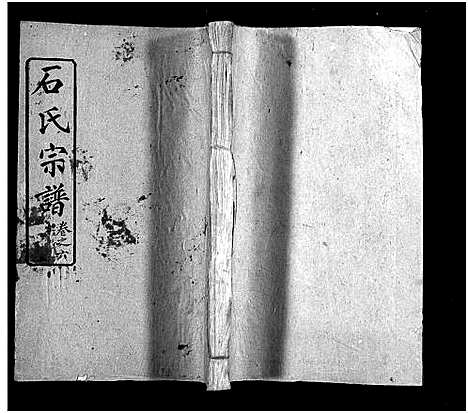 石氏宗譜
卷之六